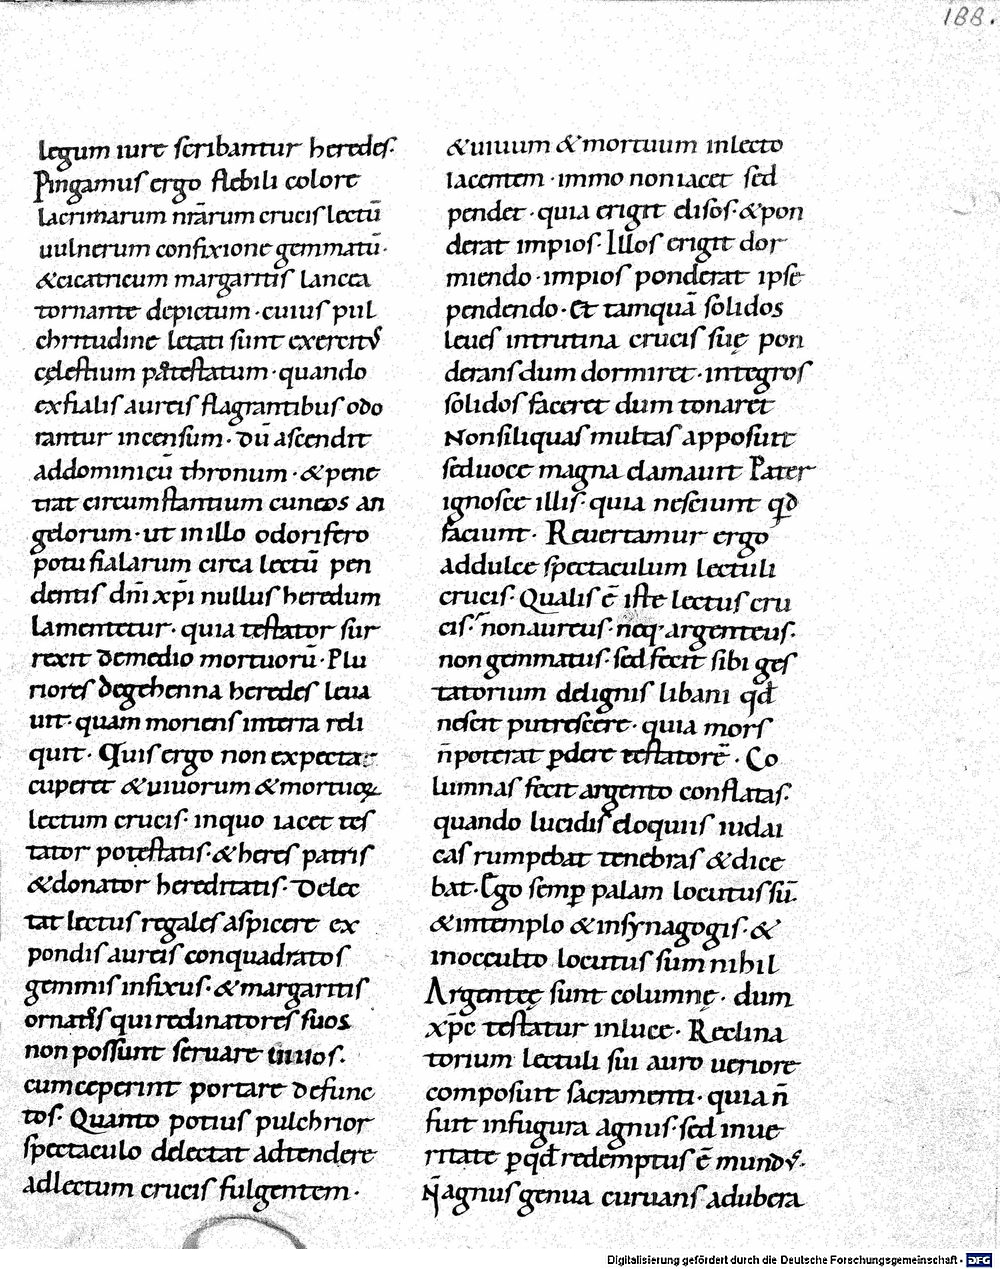 188.
legum iure scribantur heredes.
Pingamus ergo flebili colore
lacrimarum nr̄arum crucis lectū
uulnerum confixione gemmatū.
&cicatricum margaritis lancea
tornante depictum. cuius pul
chritudine letati sunt exercitus
cęlestium potestatum. quando
exfialis aureis flagrantibus odo
rantur incensum. dū ascendit
addominicū thronum. &pene
trat circumstantium cuneos an
gelorum. ut inillo odorifero
potu fialarum circa lectū pen
dentis dn̄i xp̄i nullus heredum
lamentetur. quia testator sur
rexit demedio mortuorū. Plu
riores degehenna heredes leua
uit. quam moriens interra reli
quit. Quis ergo non expecta
cuperet &uiuorum &mortuoꝝ
lectum crucis. inquo iacet tes
tator potestatis. &heres patris
&donator hereditatis. Delec
tat lectus regales aspicere ex
pondis aureis conquadratos
gemmis infixus. &margaritis
ornatus qui reclinatores suos
non possunt seruare uiuos.
cumceperint portare defunc
tos. Quanto potius pulchrior
spectaculo delectat adtendere
adlectum crucis fulgentem.
&uiuum &mortuum inlecto
iacentem. immo noniacet sed
pendet. quia erigit elisos. &pon
derat impios. Illos erigit dor
miendo. impios ponderat ipse
pendendo. Et tamquā solidos
leues intrutina crucis suę pon
derans dum dormiret. integros
solidos faceret dum tonaret
Nonsiliquas multas apposuit
seduoce magna clamauit Pater
ignosce illis. quia nesciunt qd̄
faciunt. Reuertamur ergo
addulce spectaculum lectuli
crucis. Qualis ē iste lectus cru
cis. nonaureus. neq. argenteus.
non gemmatus. sed fecit sibi ges
tatorium delignis libani qd̄
nescit putrescere. quia mors
n̄poterat ꝑdere testatorē. Co
lumnas fecit argento conflatas.
quando lucidis eloquiis iudai
cas rumpebat tenebras &dice
bat. Ego semꝑ palam locutus sū.
&intemplo &insynagogis. &
inocculto locutus sum nihil
Argenteę sunt columnę. dum
xp̄c testatur inluce. Reclina
torium lectuli sui auro ueriore
composuit sacramenti. quia n̄
fuit infugura agnus. sed inue
ritate ꝑqd̄ redemptus ē mundus.
N̄ agnus genua curuans adubera
Digitalisierung gefördert durch die Deutsche Forschungsgemeinschaft - DFG